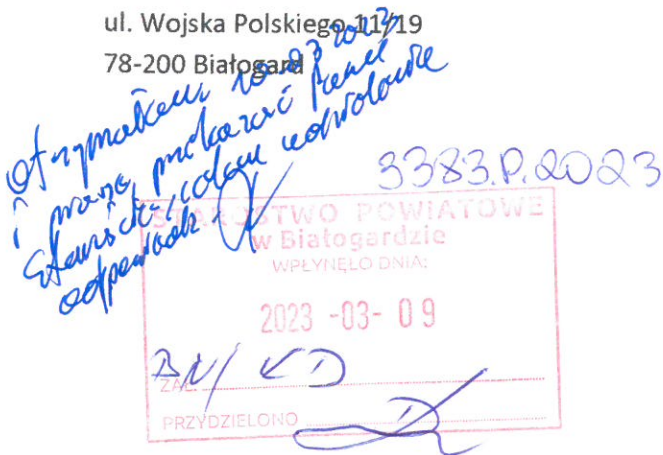 ul. Wojska Polskiego 11/19
78-200 Białogard
Otrzymałem 10.03.2023
i proszę przekazać Panu
Staroście, celem
odpowiedzi
3383.P.2023
STAROSTWO POWIATOWE
w Białogardzie
WPŁYNĘŁO DNIA:
2023 -03- 09
BN/
ZAŁ.
PRZYDZIELONO